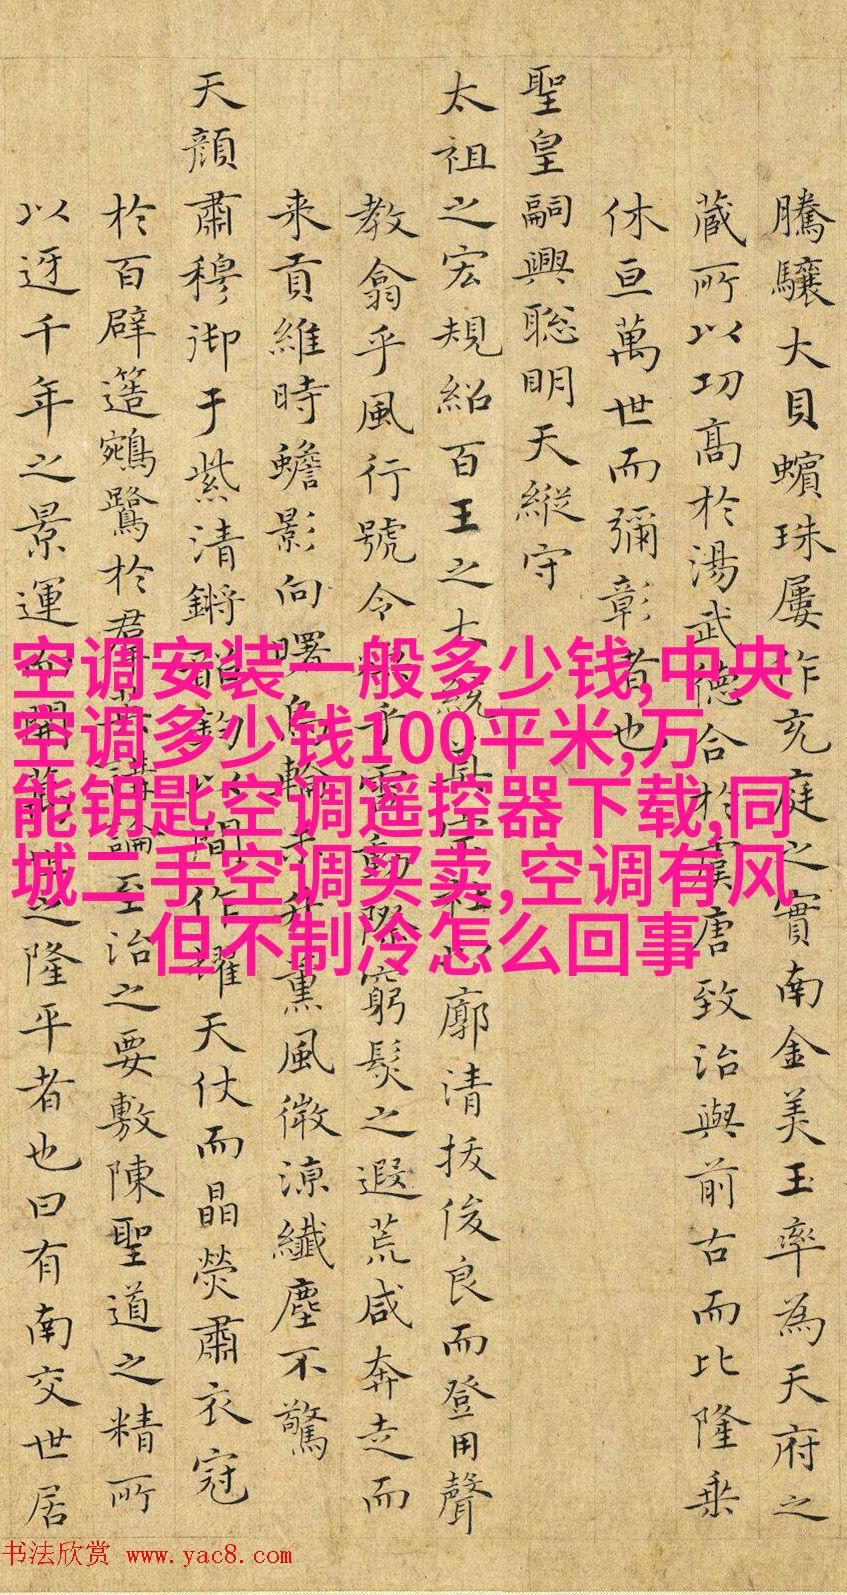 騰驤大貝蠙珠屢作充庭之實南金美玉率為天府之
蔵所以功髙於湯武德合於虞唐致治與前古而比隆乗
休亘萬世而彌彰者也
聖皇嗣興聡明天縦守
太祖之宏規紹百王之大統
廓清拔俊良而登用聲
教翕乎風行號令
乎雷動際窮髮之遐荒咸奔走而
来貢維時蟾影向曙烏輪
升薫風微涼纖塵不驚
天顔肅穆御于紫清鏘
鈞以間作耀天仗而晶熒肅衣冠
於百辟簉鵷鷺於羣
講論至治之要敷陳聖道之精所
以迓千年之景運
開萬世之隆平者也曰有南交世居
空调安装一般多少钱,中央
空调多少钱100平米,万
能钥匙空调遥控器下载,同
城二手空调买卖,空调有风
但不制冷怎么回事
书法欣赏 www.yac8.com